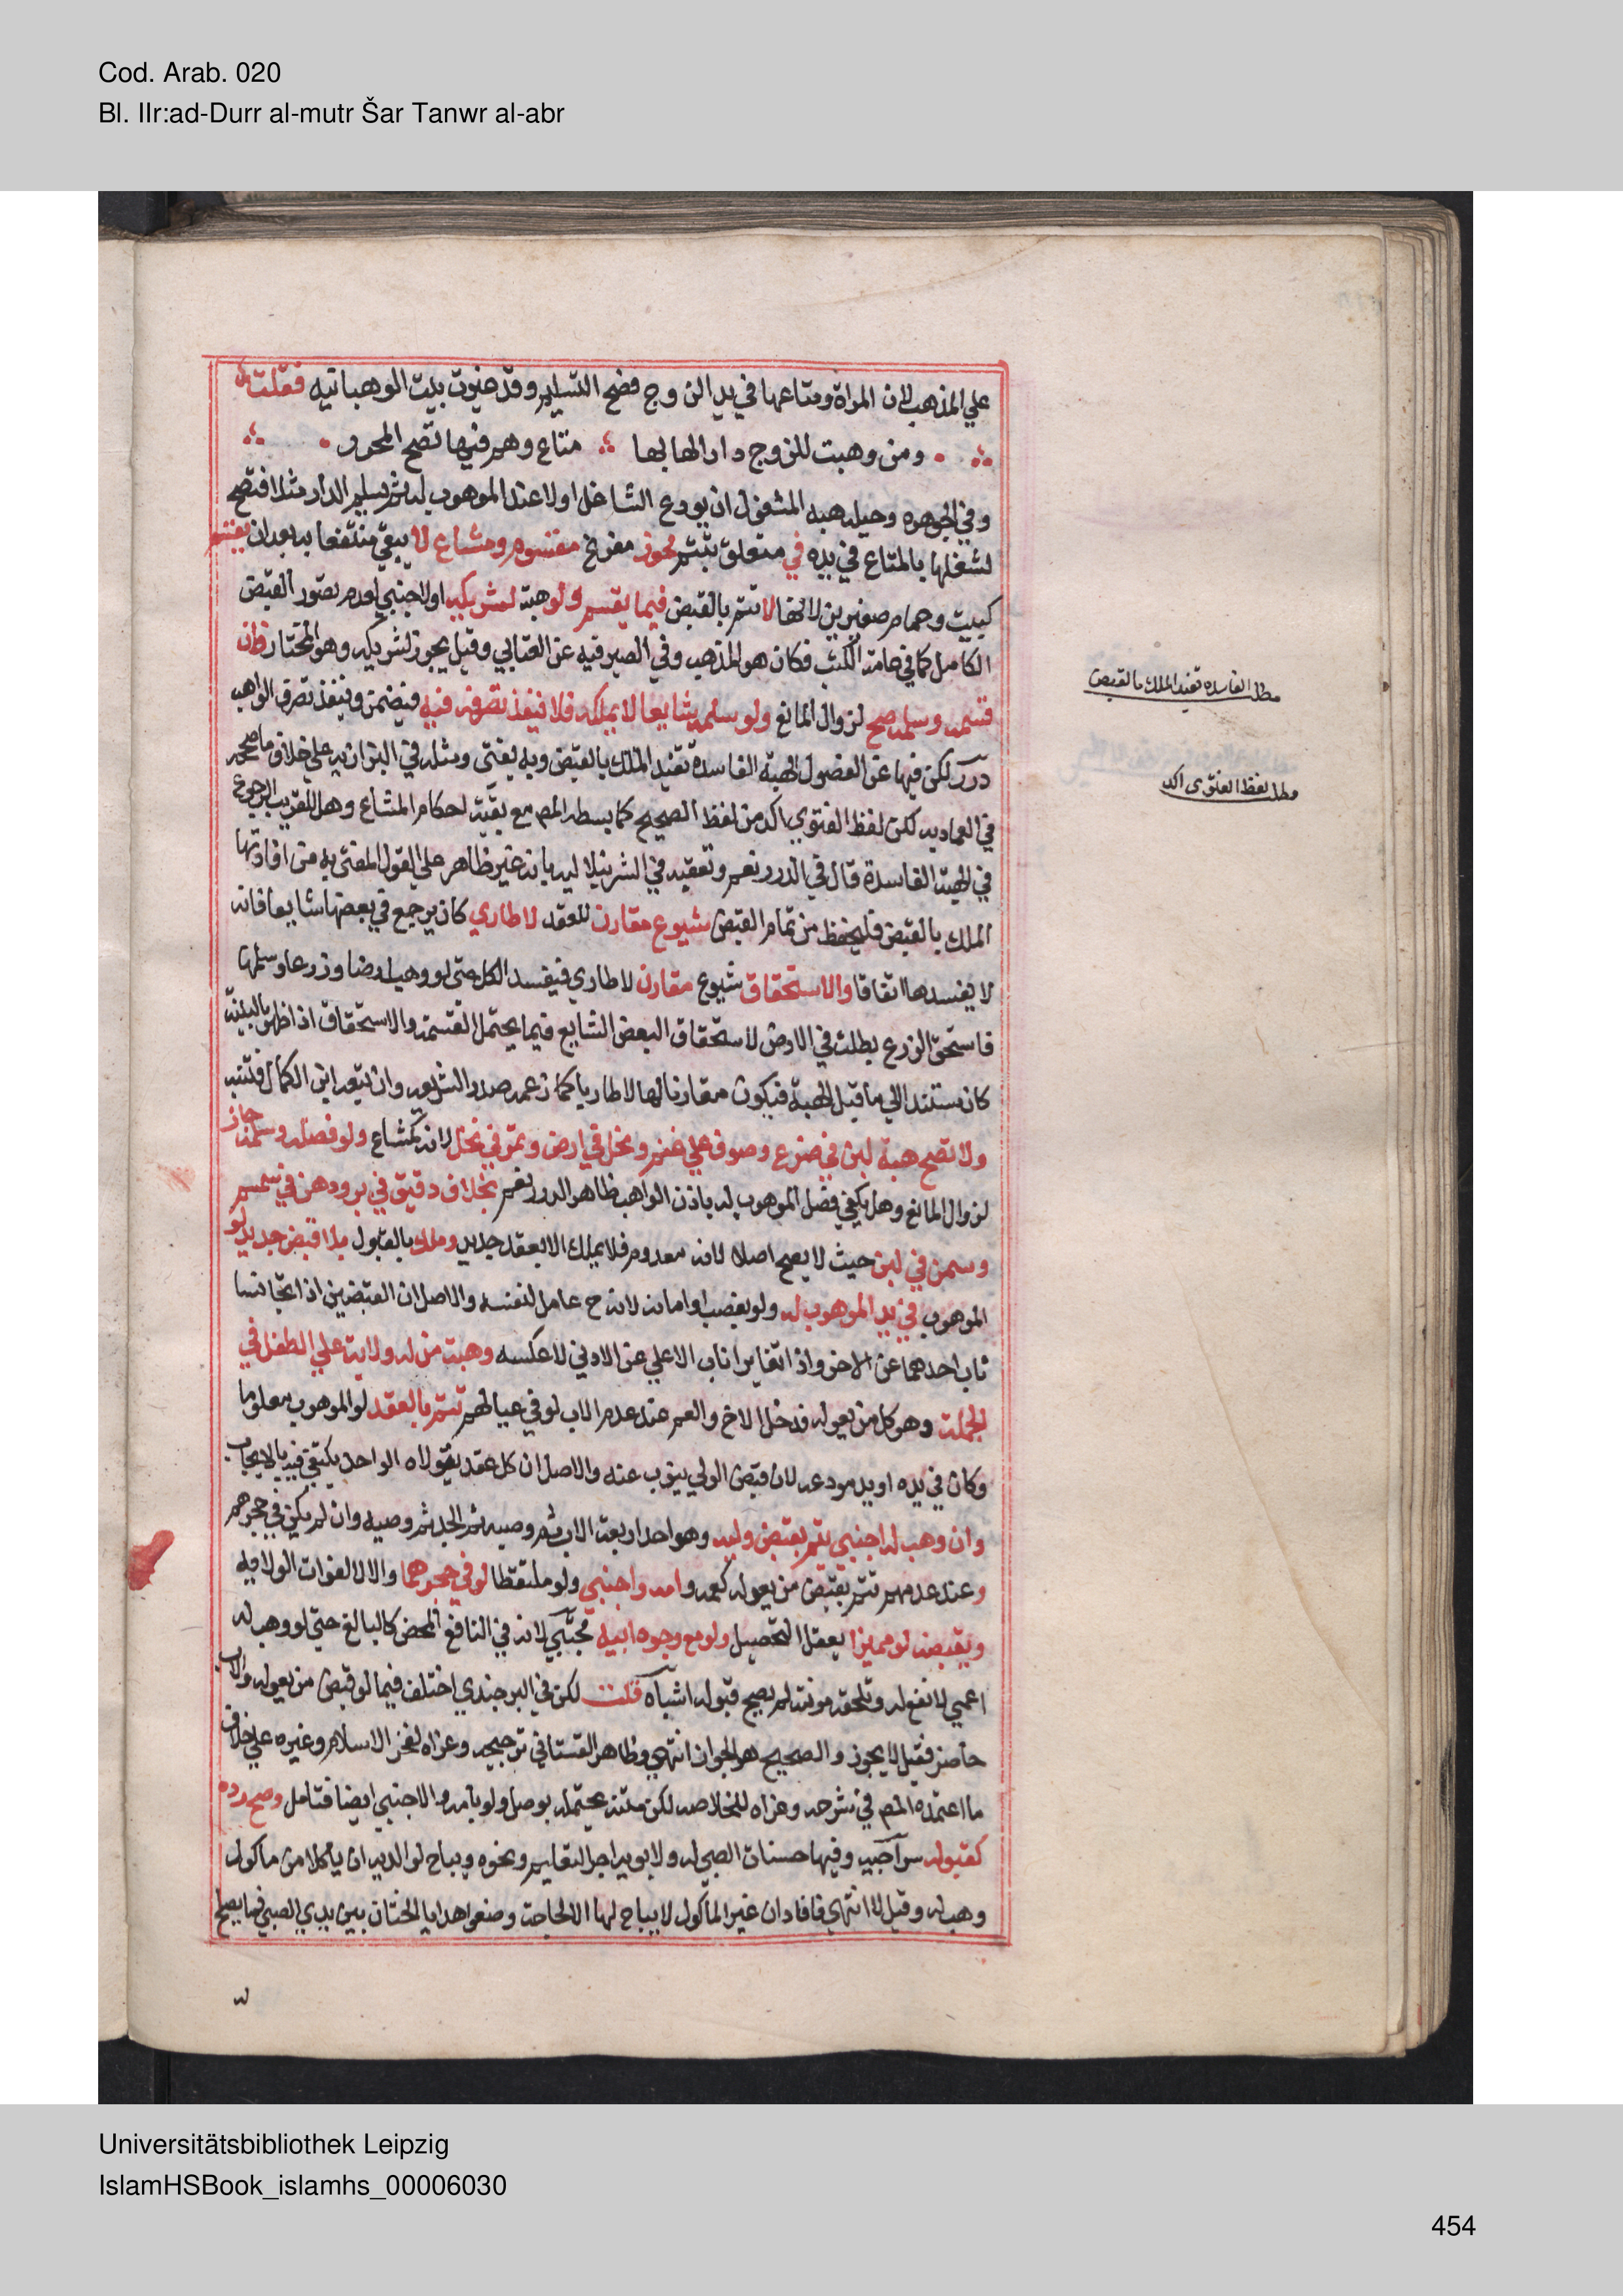 Cod. Arab. 020
Bl. IIr:ad-Durr al-mutr Šar Tanwr al-abr
علي المذهب لان المراة ومتاعها في يد الزوج فصح التسليم وقد غيرت بيت الوهبانية فقلت
ومن وهبت للزوج دارا لها بها متاع وهم فيها تصح المحرر
وفي الجوهرة وحيلة هبه المشغول ان يودع الشاغل اولا عند الموهوب له ثم يسلمه الدار مثلا فتصح
لشغلها بالمتاع في يده في متعلق بتتم محوز مفرغ مقسوم ومشاع لا يبقي منتفعا به بعد ان يقسم
كبيت وحمام صغيرين لانها لا تتم بالقبض فيما يقسم ولو هبة لشريكه او لاجنبي لعدم تصور القبض
الكامل كما في عامة الكتب فكان هو المذهب وفي الصيرفيه عن العتابي وقيل يجوز لشريكه وهو المختار فان
قسمه وسلمه صح لزوال المانع ولو سلمه شايعا لا يملكه فلا ينفذ تصرفه فيه فيضمنه وينفذ تصرف الواهب
درر لكن فيها عن الفصول الهبة الفاسدة تفيد الملك بالقبض وبه يفتى ومثله في البزازيه علي خلاف ما صححه
في العماديه لكن لفظ الفتوي اكد من لفظ الصحيح كما بسطه المص مع بقية احكام المشاع وهل للقريب الرجوع
في الهبة الفاسدة قال في الدرر نعم وتعقبه في الشرنبلاليه بانه غير ظاهر علي القول المفتى به من افادتها
الملك بالقبض فليحفظ من تمام القبض شيوع مقارن للعقد لا طاري كان يرجع في بعضها شايعا فانه
لا يفسدها اتفاقا والاستحقاق شيوع مقارن لا طاري فيفسد الكل حتى لو وهب ارضا وزرعا وسلمها
فاستحق الزرع بطلت في الارض لاستحقاق البعض الشايع فيما يحتمل القسمة والاستحقاق اذا ظهر بالبينة
كان مستندا الي ما قبل الهبة فيكون مقارنا لها لا طاريا كما زعمه صدر الشريعه وان تبعه ابن الكمال فتنبه
ولا تصح هبة لبن في ضرع وصوف علي غنم ونخل في ارض وتمر في نخل لانه كمشاع ولو فصله وسلمه جاز
لزوال المانع وهل يكفي فصل الموهوب له باذن الواهب ظاهر الدرر نعم بخلاف دقيق في بر ودهن في سمسم
وسمن في لبن حيث لا يصح اصلا لانه معدوم فلا يملك الا بعقد جديد وملك بالقبول بلا قبض جديد لو
الموهوب في يد الموهوب له ولو بغصب او امانة لانه ح عامل لنفسه والاصل ان القبضين اذا تجانسا
ناب احدهما عن الاخر واذا تغايرا ناب الاعلي عن الادني لا عكسه وهبة من له ولاية علي الطفل في
الجملة وهو كل من يعوله فدخل الاخ والعم عند عدم الاب لو في عيالهم تتم بالعقد لو الموهوب معلوما
وكان في يده او يد مودعه لان قبض الولي ينوب عنه والاصل ان كل عقد يتولاه الواحد يكتفي فيه بالايجاب
وان وهب له اجنبي يتم بقبض وليه وهو احد اربعة الاب ثم وصيه ثم الجد ثم وصيه وان لم يكن في حجرهم
وعند عدمهم تتم بقبض من يعوله كعمه وامه واجنبي ولو ملتقطا لو في حجرهما والا لا لفوات الولايه
وبقبضه لو مميزا يعقل التحصيل ولو مع وجود ابيه مجتبي لانه في النافع المحض كالبالغ حتي لو وهب له
اعمي لا نفع له وتلحقه مونته لم يصح قبوله اشباه قلت لكن في البرجندي اختلف فيما لو قبض من يعوله والاب
حاضر فقيل لا يجوز والصحيح هو الجواز انتهي وظاهر القهستاني ترجيحه وعزاه لفخر الاسلام وغيره علي خلاف
ما اعتمده المص في شرحه وعزاه للخلاصه لكن متنه يحتمله بوصل ولو بامه والاجنبي ايضا فتامل وصح رده
كقبوله سراجيه وفيها حسنات الصبي له ولابويه اجر التعليم ونحوه ويباح لوالديه ان ياكلا من ماكول
وهب له وقيل لا انتهي فافاد ان غير الماكول لا يباح لهما الا لحاجة وضعوا هدايا الختان بين يدي الصبي فما يصلح
له
مطلب الفاسدة تفيد الملك بالقبض
مطلب لفظ الفتوي اكد
Universitätsbibliothek Leipzig
IslamHSBook_islamhs_00006030
454